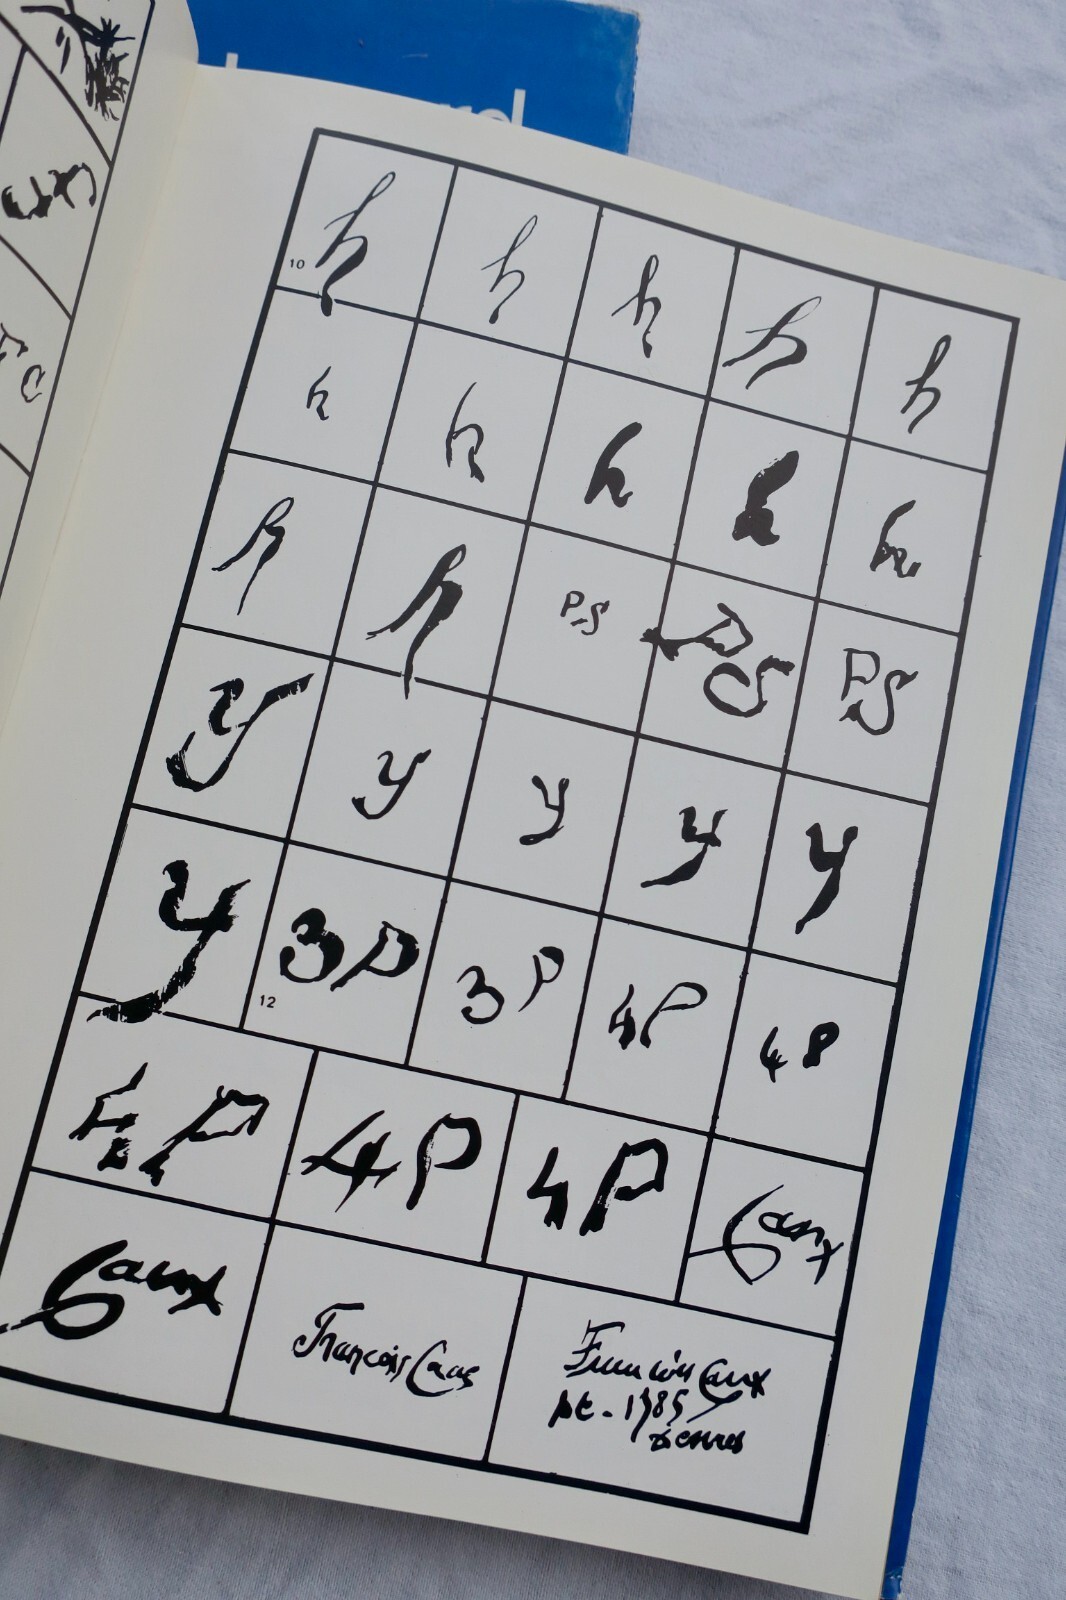 10
h h h h h
h h h h h
h h PS PS PS
y y y y y
y 3P 3P 4P 48
12
4P 4P 4P Caux
Caux François Caux François Caux
pt. 1785